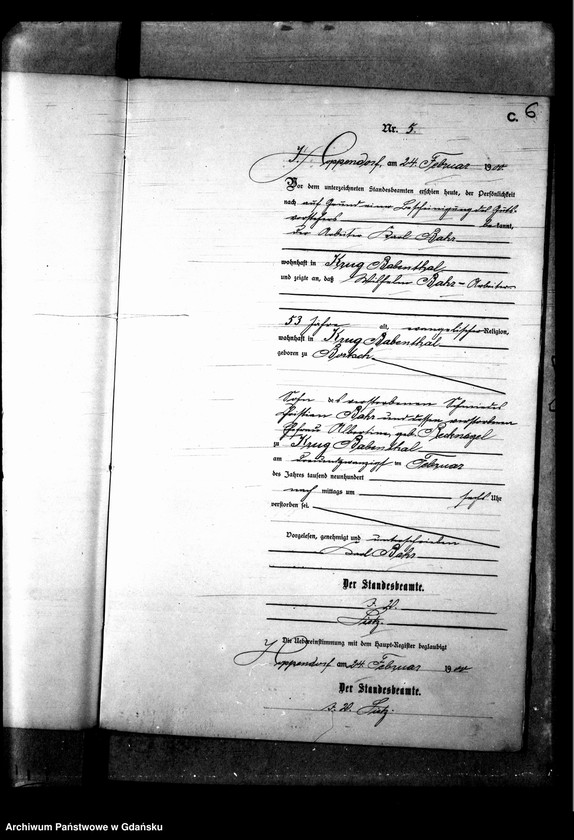 C. 6
Nr. 5.
Hoppendorf, am 24. Februar 1900.
Vor dem unterzeichneten Standesbeamten erschien heute, der Persönlichkeit
nach auf Grund einer Bescheinigung des Guts-
vorstehers bekannt,
der Arbeiter Karl Bahr
wohnhaft in Krug Babenthal
und zeigte an, daß Wilhelm Bahr - Arbeiter
53 Jahre alt, evangelischer Religion,
wohnhaft in Krug Babenthal
geboren zu
Sohn des verstorbenen Schmiedes
Christian Bahr und dessen verstorbenen
Ehefrau Albertine, geb. Recknagel
zu Krug Babenthal
am dreiundzwanzigsten Februar
des Jahres tausend neunhundert
nach mittags um sechs Uhr
verstorben sei.
Vorgelesen, genehmigt und unterschrieben
Karl Bahr
Der Standesbeamte.
Die Uebereinstimmung mit dem Haupt-Register beglaubigt
Hoppendorf am 24. Februar 1900
Der Standesbeamte.
Archiwum Państwowe w Gdańsku